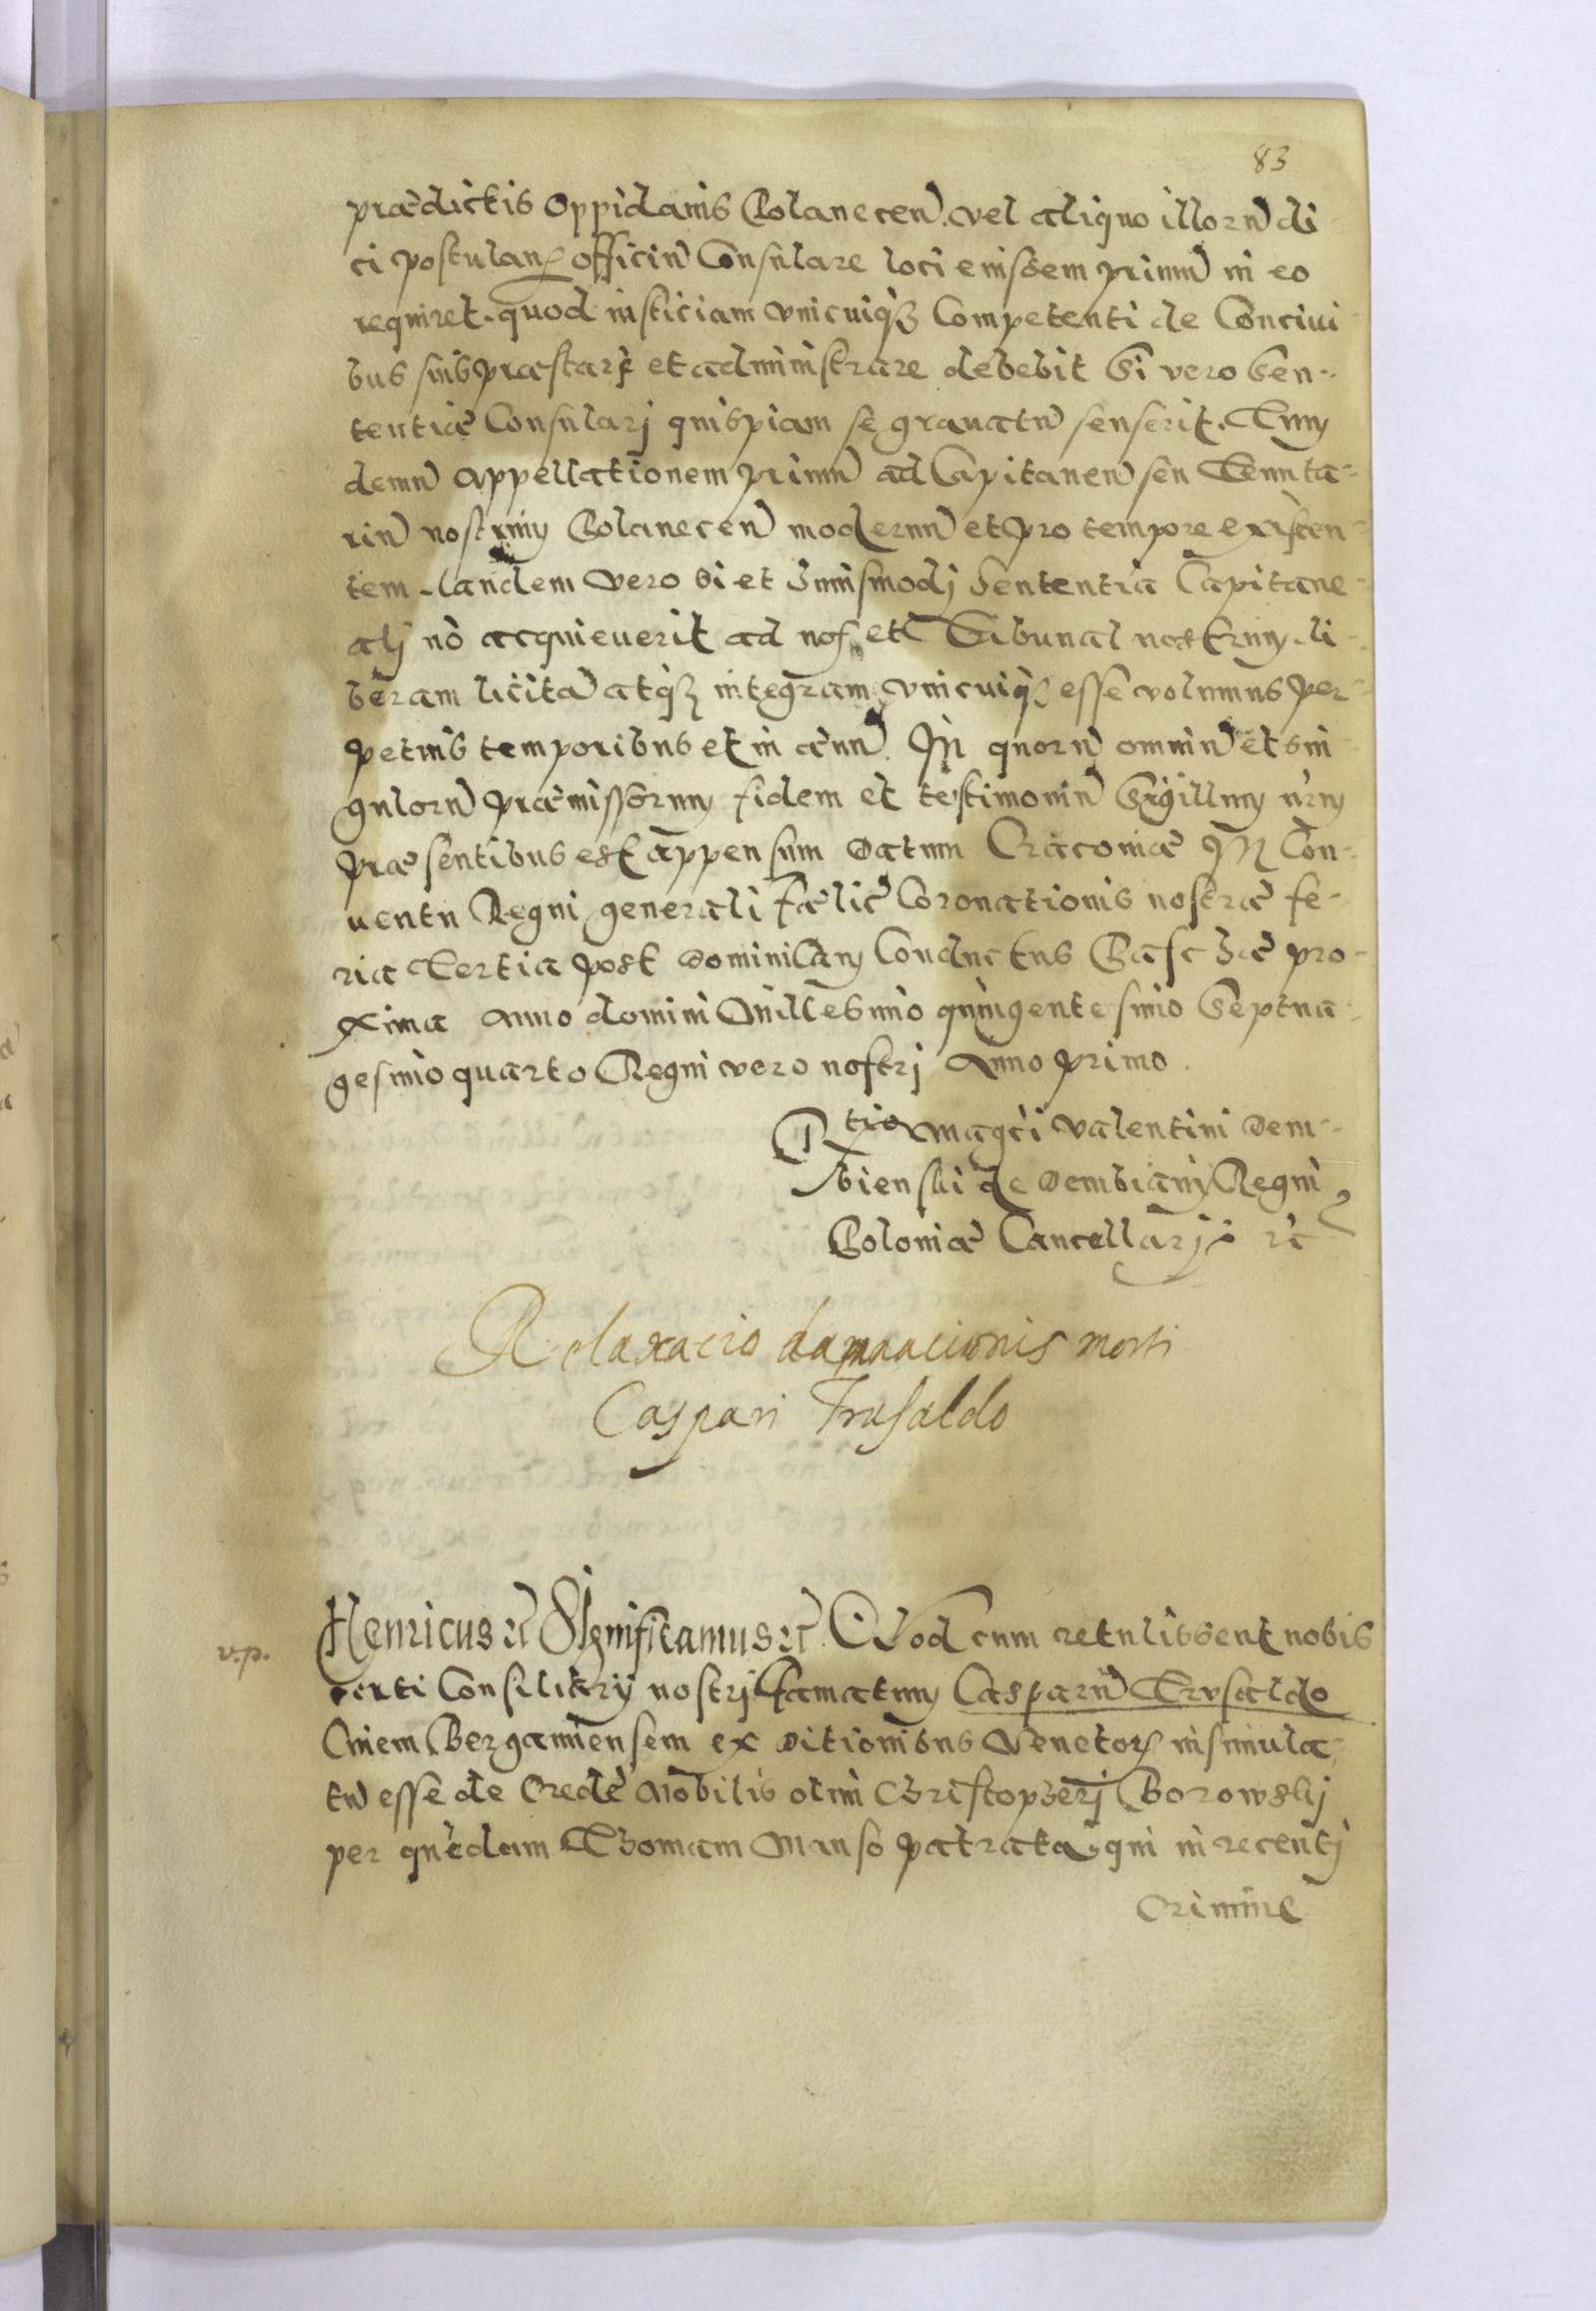 83
prædictis Oppidanis Polanecen. vel aliquo illorũ di
ci postulan officiũ Consulare loci eiusdem primũ in eo
requiret. quod iusticiam vnicuiqȝ Competenti de Conciui
bus suis præstare et administrare debebit Si vero Sen-
tentiæ Consularj quispiam se grauatũ senserit. Tum
demũ appellationem primũ ad Capitaneũ seu Tenuta-
riũ nostrum Polanecen modernũ et pro tempore existen-
tem. tandem vero si et huiusmodj Sententia Capitane-
alj nõ acquieuerit ad nos et Tribunal nostrum. li-
beram licitã atqȝ integram vnicuiqȝ esse volumus per-
petuis temporibus et in æuũ. In quorũ omniũ et sin
gulorũ præmissorum fidem et testimoniũ Sigillum nr̃m
præsentibus est appensum Datum Cracouiæ In Con-
uentu Regni generali fælic̃ Coronationis nostræ fe-
ria Tertia post Dominicam Conductus Paschæ pro-
xima Anno domini Millesimo quingentesimo Septua
gesimo quarto Regni vero nostrj Anno primo.
Rtio magci Valentini Dem-
bienski de Dembiany Regni
Poloniæ Cancellarij rc̃
Relaxacio damnacionis morti
Caspari Trusaldo
v.p.
Henricus rc̃ Significamus rc̃. Quod cum retulissent nobis
certi Consiliarij nostrj famatum Casparũ Trusaldo
Ciuem Bergamensem ex Ditionibus Venetor insimula-
tũ esse de Cæde Nobilis olim Christopherj Borowskj
per quẽdam Thomam Manso patrata, qui in recentj
Crimine